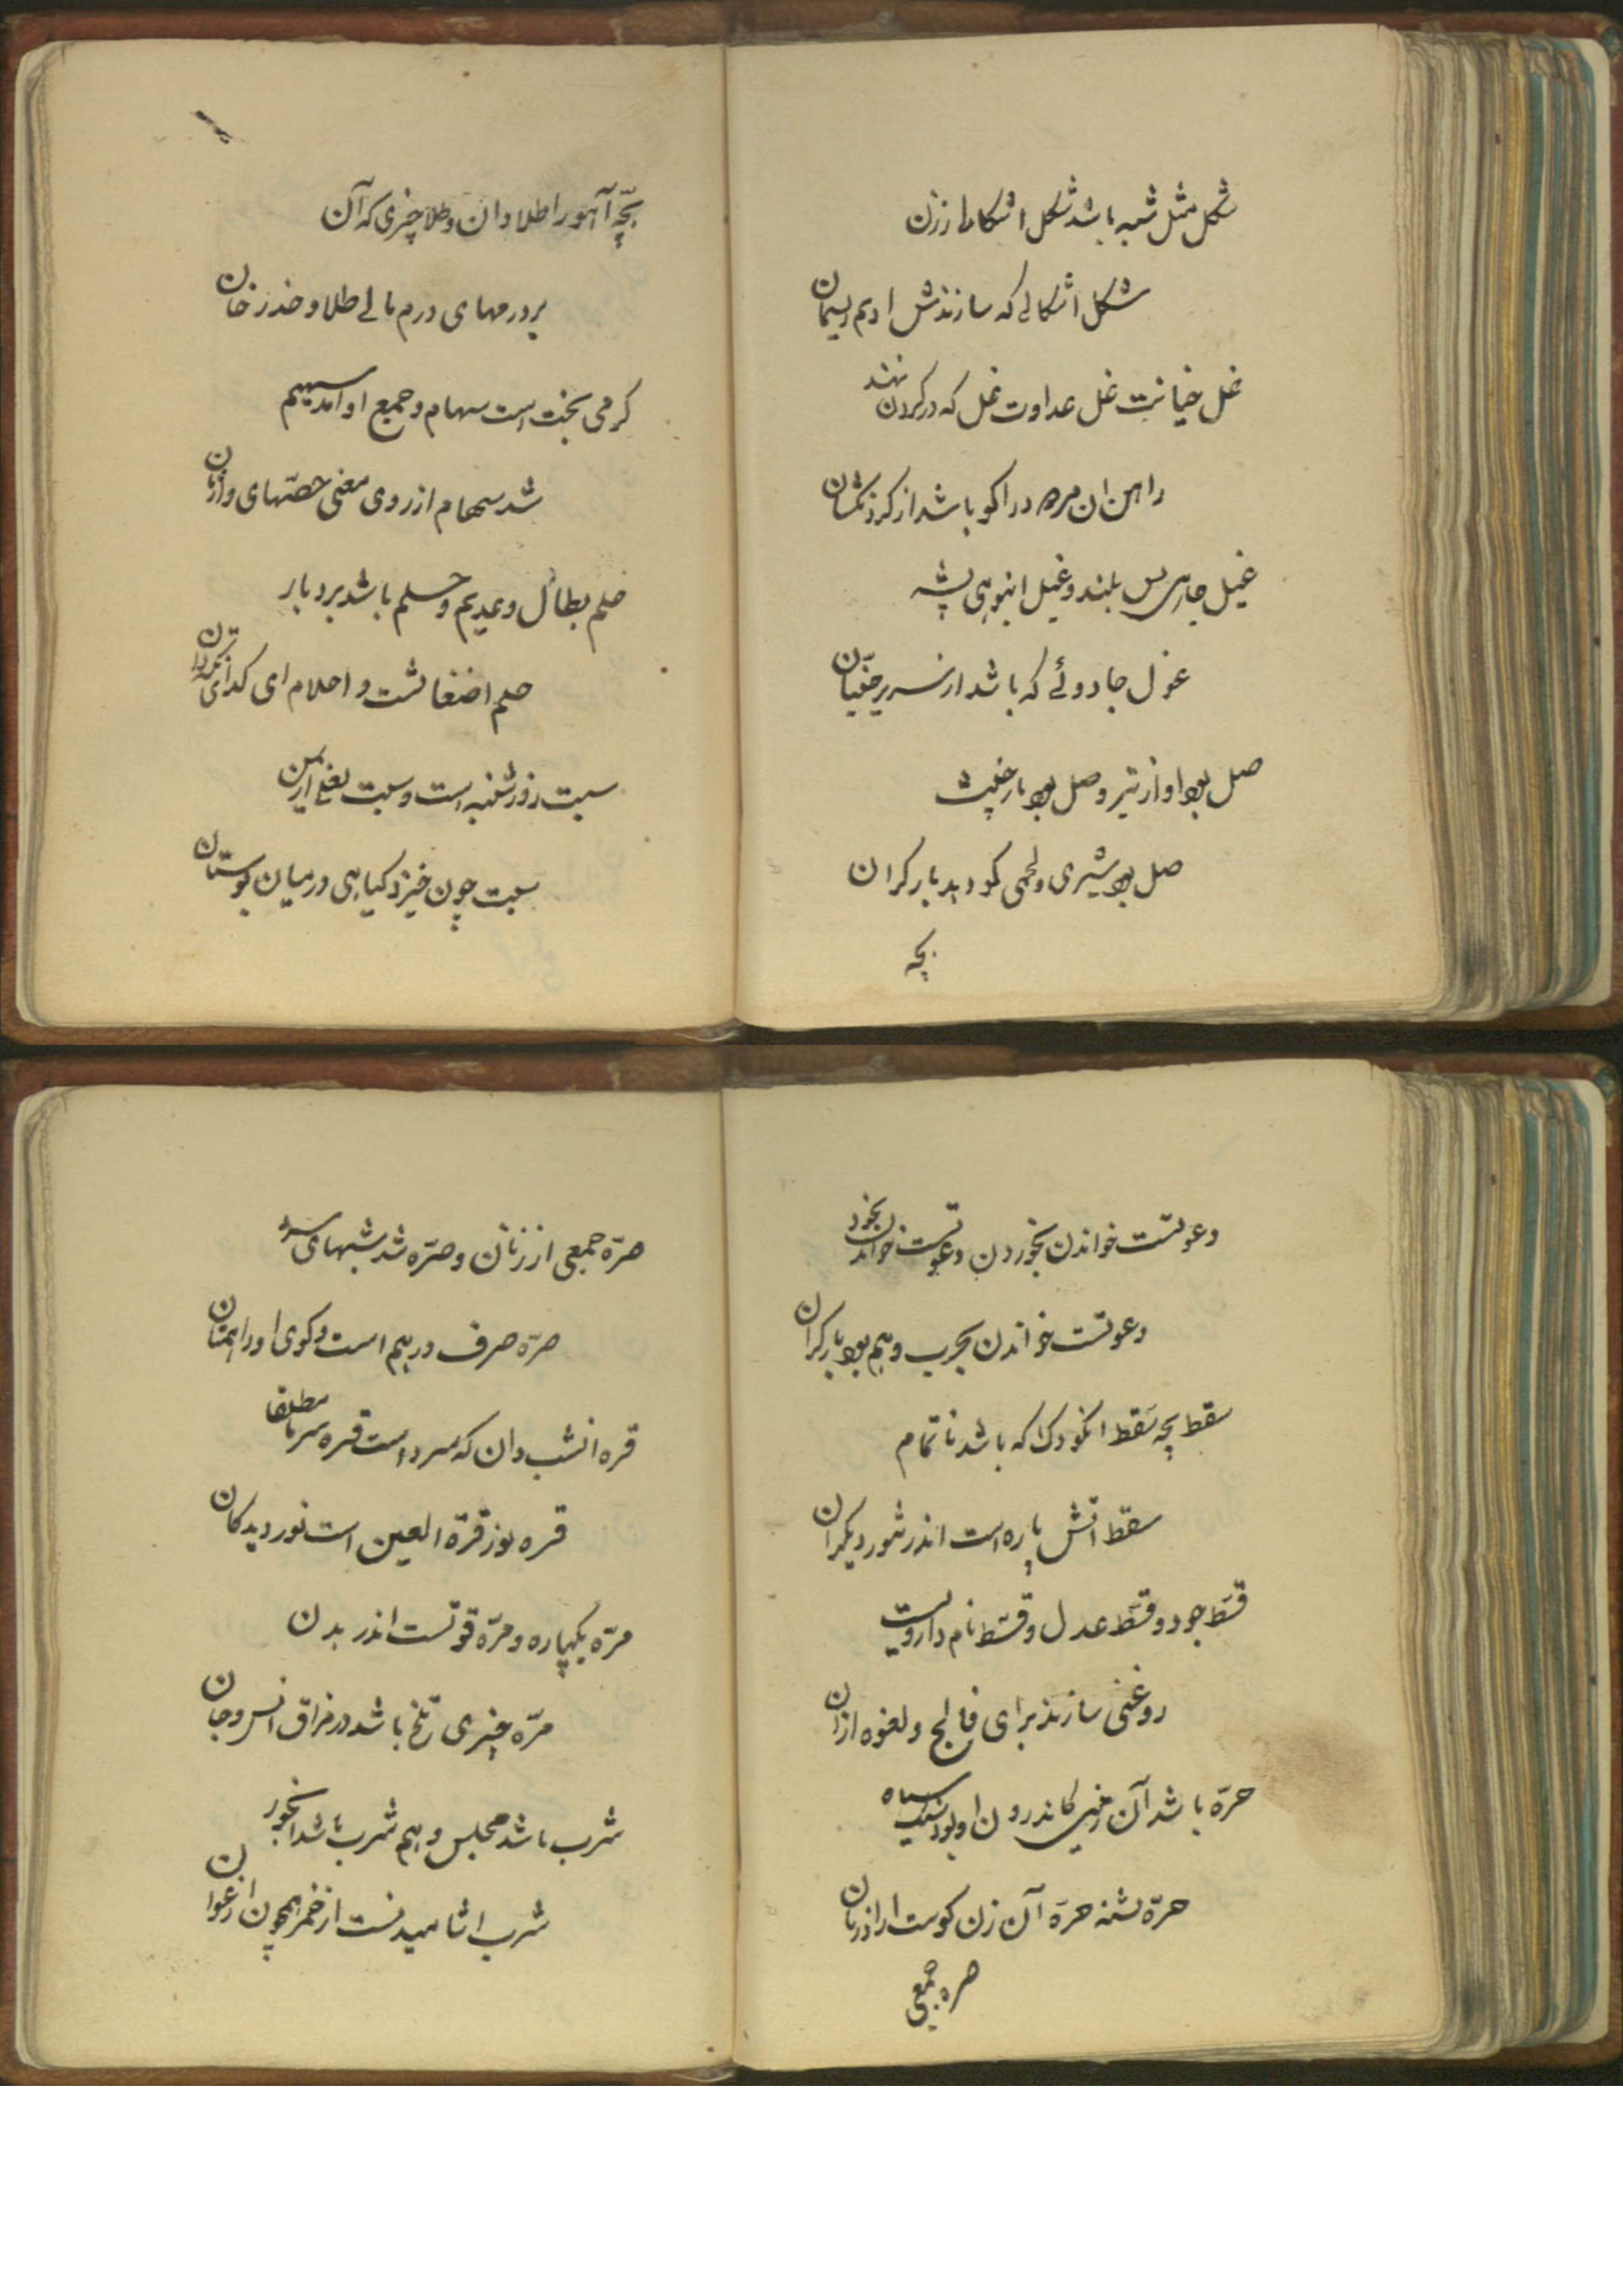 شکل مثل شبه باشد شکل اشکال از زن
شکل اشکالی که سازندش ادیم ریسمان
غل خیانت غل عداوت غل که در کردن نهند
راهن ان مرد را کو باشد از
غیل جاهی بس بلند و غیل انبوهی پشه
غول جادوئے که باشد از جنیان
صل بود اواز تیر و صل بود مار خبیث
صل بود شیری و لحمی کو دهد بار کران
بچه
بچّه آهو را طلا دان و طلا چیزی که آن
بر ورمهای درم مالے طلا و خدر خان
کرمی سخت است سهام و جمع او امد سهیم
شد سهام از روی معنی حصّهای وارثان
حلم بطال و عدیم و حلم باشد بردبار
حلم اضغاثست و احلام ای کدای
سبت روز شنبه است و سبت نعل
سبت چون خیزد کیاهی در میان بوستان
دعوتست خواندن بخوردن دعوتست خواندن بخود
دعوتست خواندن بحرب و هم بود بار کران
سقط بچه سقط انکودک که باشد ناتمام
سقط اتش پاره است اندر شور دیکران
قسط جور و قسط عدل و قسط نام دارویست
روغنی سازند برای فالج و لغوه ازان
حرّه باشد آن زمینی کاندرون او بود سنک سیاه
حرّه تشنه حرّه آن زن کوست
صره جمعی
صرّه جمعی از زنان و صرّه شد شبهای سرد
صرّه صرف درهم است و کوی او را
قره انشب دان که سرد است قره سرما مطلقا
قره نوز قرّة العین است نور دیدکان
مرّه یکباره و مرّه قوتست اندر بدن
مرّه چیزی تلخ باشد در مزاق انس و جان
شرب باشد مجلس و هم شرب باشد ابخور
شرب اشامیدنست از خمر همچون ارغوان